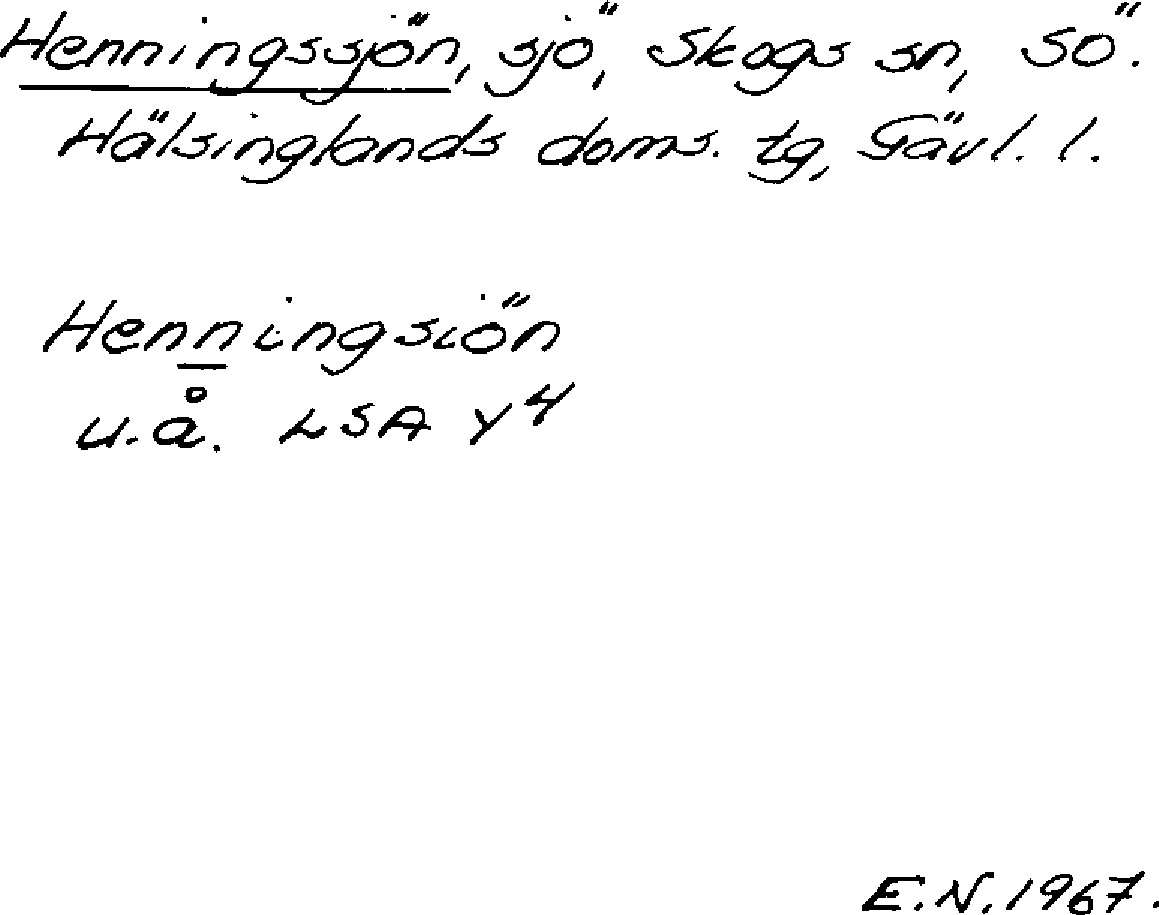 Henningssjön, sjö, Skogs sn, SÖ.
Hälsinglands doms. tg, Gävl. l.
Henningsiön
u.å. LSA Y4
E.N. 1967.